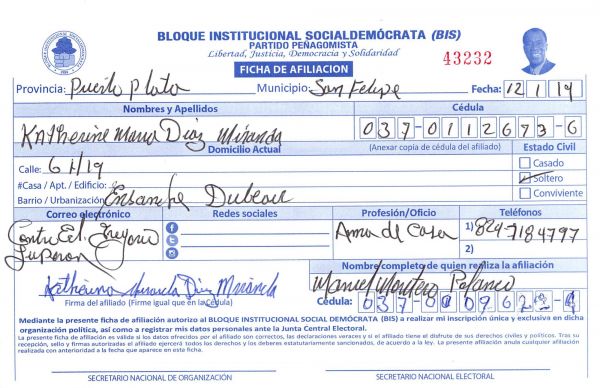 BLOQUE INSTITUCIONAL SOCIALDEMÓCRATA (BIS)
PARTIDO PEÑAGOMISTA
Libertad, Justicia, Democracia y Solidaridad
43232
FICHA DE AFILIACION
Provincia: Puerto Plata Municipio: San Felipe Fecha: 12/1/19
Nombres y Apellidos Cédula
Katherine Maria Diaz Miranda 037-0112673-6
Domicilio Actual (Anexar copia de cédula del afiliado) Estado Civil
Calle: 61/19 Casado
#Casa / Apt. / Edificio: Soltero
Barrio / Urbanización: Ensanche Dubeau Conviviente
Correo electrónico Redes sociales Profesión/Oficio Teléfonos
Ama de Casa 1) 829-7184797
Luperon 2)
Nombre completo de quien realiza la afiliación
Katherine Miranda Diaz Miranda Manuel Montero Polanco
Firma del afiliado (Firme igual que en la Cédula) Cédula:
Mediante la presente ficha de afiliación autorizo al BLOQUE INSTITUCIONAL SOCIAL DEMÓCRATA (BIS) a realizar mi inscripción única y exclusiva en dicha
organización política, así como a registrar mis datos personales ante la Junta Central Electoral.
La presente ficha de afiliación es válida si los datos ofrecidos por el afiliado son correctos, las declaraciones veraces y si el afiliado tiene el disfrute de sus derechos civiles y políticos. Tras su
recepción, sello y firmas autorizadas el afiliado ejercerá todos los derechos y los deberes estatutariamente sancionados, de acuerdo a la ley. La presente afiliación anula cualquier afiliación
realizada con anterioridad a la fecha que aparece en esta ficha.
SECRETARIO NACIONAL DE ORGANIZACIÓN SECRETARIO NACIONAL ELECTORAL